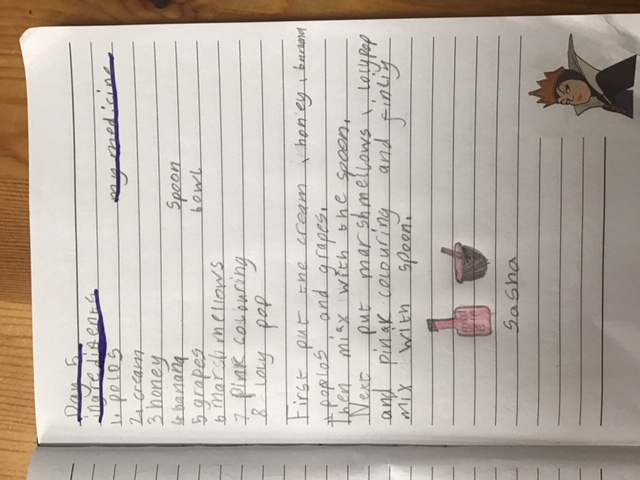 Day 5
ingredients my medicine
1. polos
2. cream
3 honey
4 banana spoon
5 grapes bowl
6 marshmellows
7 Pink colouring
8. loly pop
First put the cream, honey, banana
+ polos and grapes.
Then mix with the spoon.
Next put marshmellows, lollypop
and pink colouring and finliy
mix with spoon.
Sasha